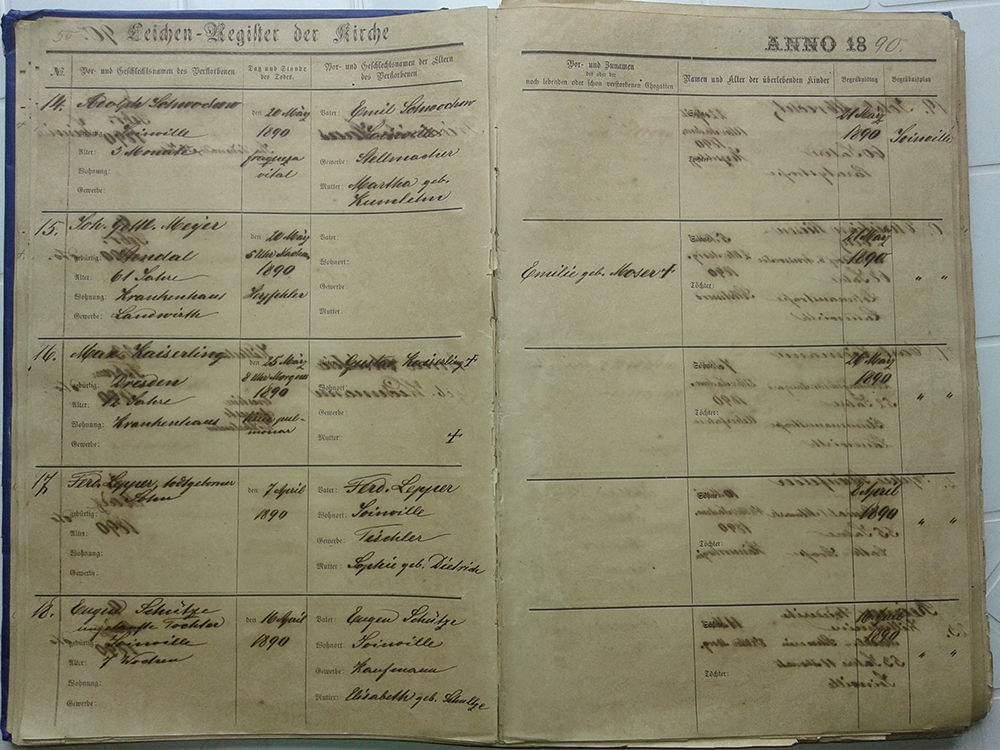 Leichen-Register der Kirche
ANNO 1890.
№ Vor- und Geschlechtsnamen des Verstorbenen
Tag und Stunde des Todes.
Vor- und Geschlechtsnamen der Eltern des Verstorbenen
Vor- und Zunamen des oder der noch lebenden oder schon verstorbenen Ehegatten
Namen und Alter der überlebenden Kinder
Begräbnißtag
Begräbnißplatz
14. Adolph Schwochow
gebürtig: Joinville
Alter: 3 Monate
Wohnung:
Gewerbe:
den 20 März
1890
vital
Vater: Emil Schwochow
Wohnort: Joinville
Gewerbe: Stellmacher
Mutter: Martha geb.
21 März
1890
Joinville
15. Joh. Gottl. Meyer
gebürtig: Stendal
Alter: 61 Jahre
Wohnung: Krankenhaus
Gewerbe: Landwirth
den 20 März
5 Uhr
1890
Vater:
Wohnort:
Gewerbe:
Mutter:
Emilie geb. Moser +
Töchter:
21 März
1890
" "
16. Max Kaiserling
gebürtig: Dresden
Alter: 12 Jahre
Wohnung: Krankenhaus
Gewerbe:
den 25 März
8 Uhr Morgens
1890
pul-
monar
Vater: Gustav Kaiserling +
Wohnort:
Gewerbe:
Mutter: +
Töchter:
26 März
1890
" "
17. Ferd. Lepper, todtgeborner
Sohn
gebürtig:
Alter:
Wohnung:
Gewerbe:
den 7 April
1890
Vater: Ferd. Lepper
Wohnort: Joinville
Gewerbe: Tischler
Mutter: Sophie geb. Dietrich
Töchter:
8 April
1890
" "
18. Eugen Schütze
ungetaufte Tochter
gebürtig: Joinville
Alter: 7 Wochen
Wohnung:
Gewerbe:
den 16 April
1890
Vater: Eugen Schütze
Wohnort: Joinville
Gewerbe: Kaufmann
Mutter: Elisabeth geb. Schultze
Töchter:
16 April
1890
" "